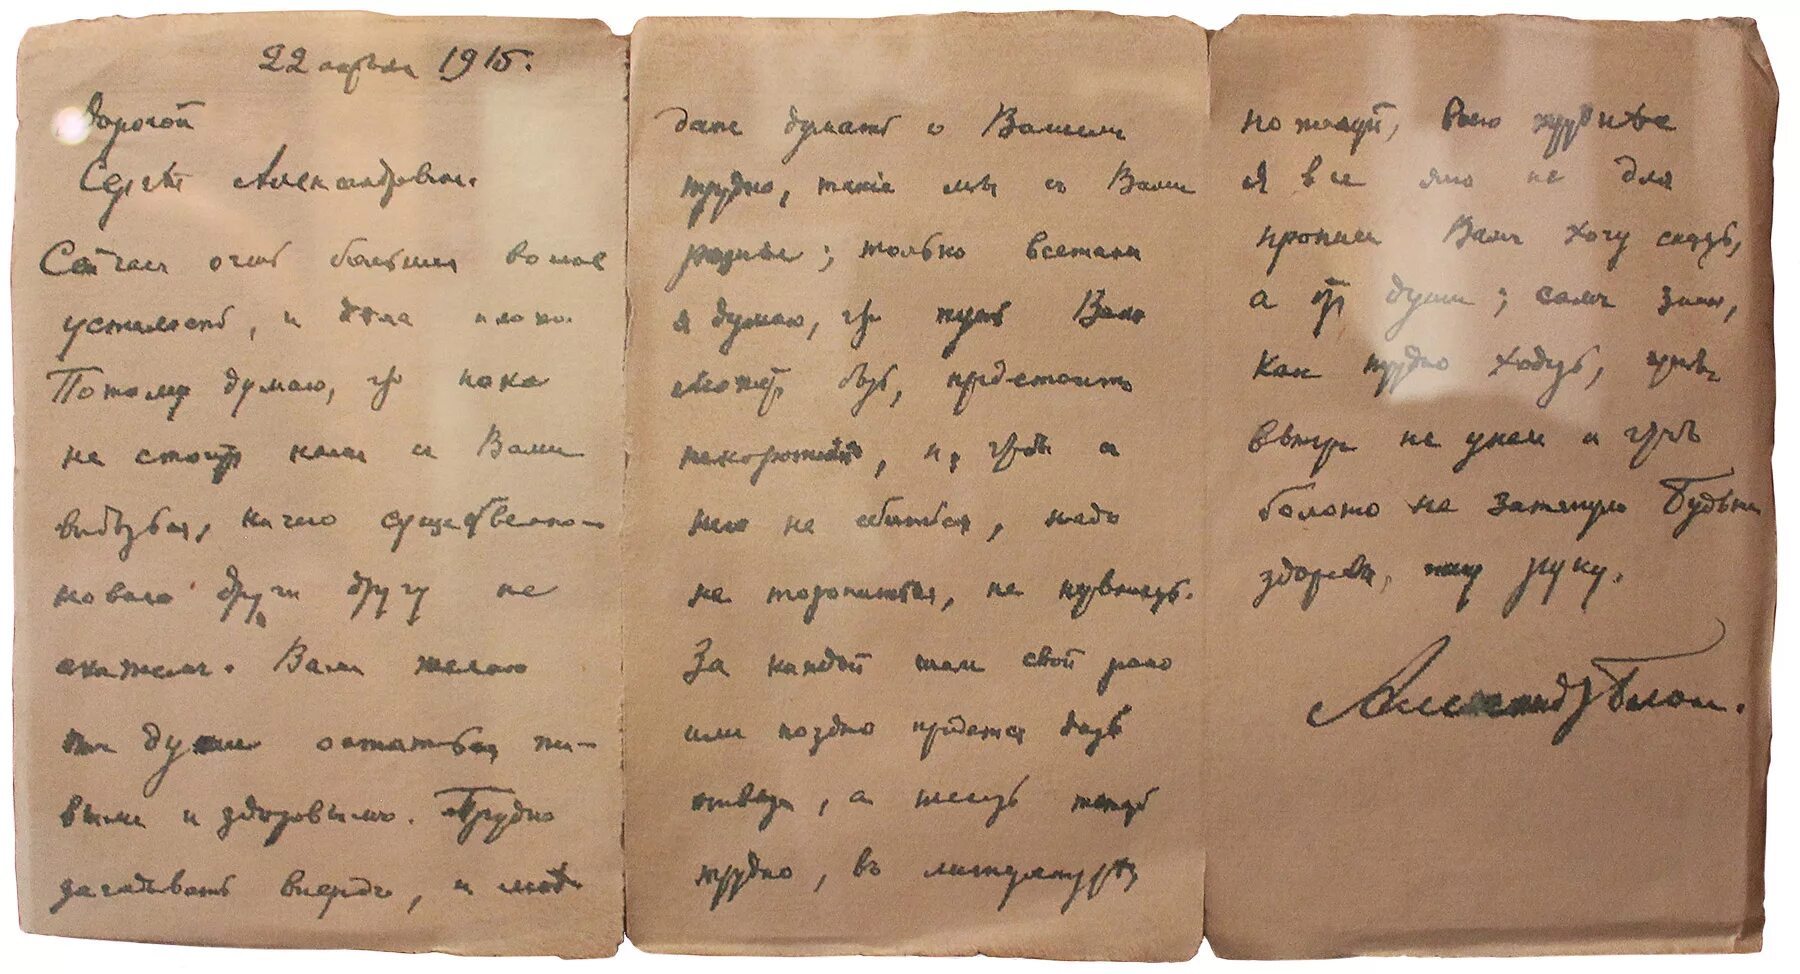 22 апрѣля 1915.
Дорогой
Сергѣй Александровичъ.
Сейчасъ очень большая во мнѣ
усталость, и дѣла много.
Потому думаю, что пока
не стоит намъ с Вами
видѣться, ничего существенно-
новаго другъ другу не
скажемъ. Вамъ желаю
от души остаться жи-
вымъ и здоровымъ. Трудно
загадывать впередъ, и мнѣ
даже думать о Вашемъ
трудно, такіе мы съ Вами
разные; только всетаки
я думаю, что путь Вамъ
может быть, предстоитъ
некороткій, и, чтобы с
него не сбиться, надо
не торопиться, не нервничать.
За каждый шаг свой рано
или поздно придется дать
отвѣт, а шагать теперь
трудно, въ литературѣ,
пожалуй, всего труднѣе
Я все это не для
прописи Вамъ хочу сказать,
а от души; самъ знаю,
как трудно ходить, чтобы
вѣтеръ не унесъ и чтобы
болото не затянуло Будьте
здоровы, жму руку.
Александръ Блокъ.